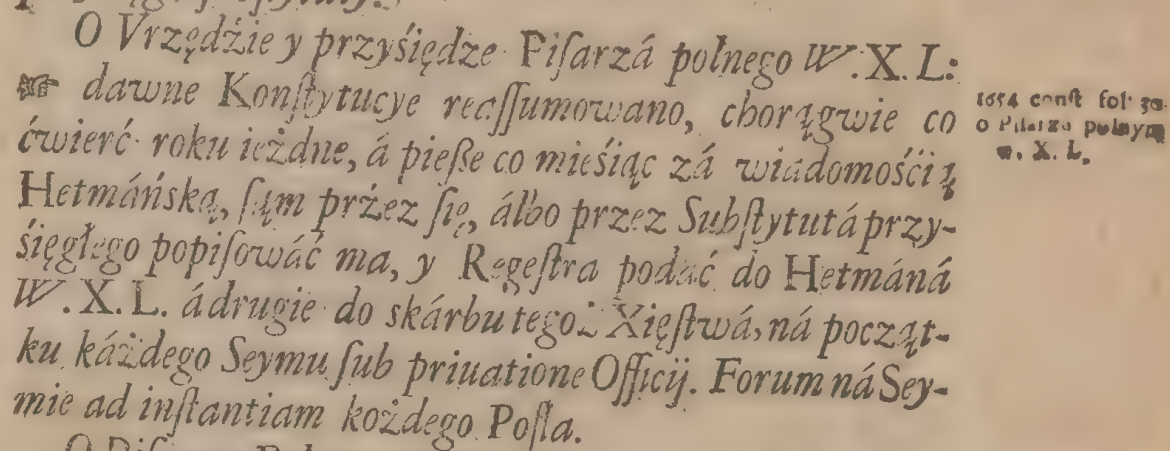 O Vrzędźie y przyśiędze Piſarzá polnego W. X. L:
☞ dawne Konſtytucye reaſſumowano, chorągwie co
ćwierć roku ieżdne, á pieſze co mieśiąc zá wiadomośćią
Hetmáńską, ſam przez ſię, álbo przez Subſtytutá przy-
śięgłego popiſowáć ma, y Regeſtra podać do Hetmáná
W. X. L. á drugie do skárbu tegoż Xięſtwá, ná począt-
ku káżdego Seymu ſub priuatione Officij. Forum ná Sey-
mie ad inſtantiam kożdego Poſla.
1654 conſt fol: 30.
o Piſarzu polnym
w. X. L.